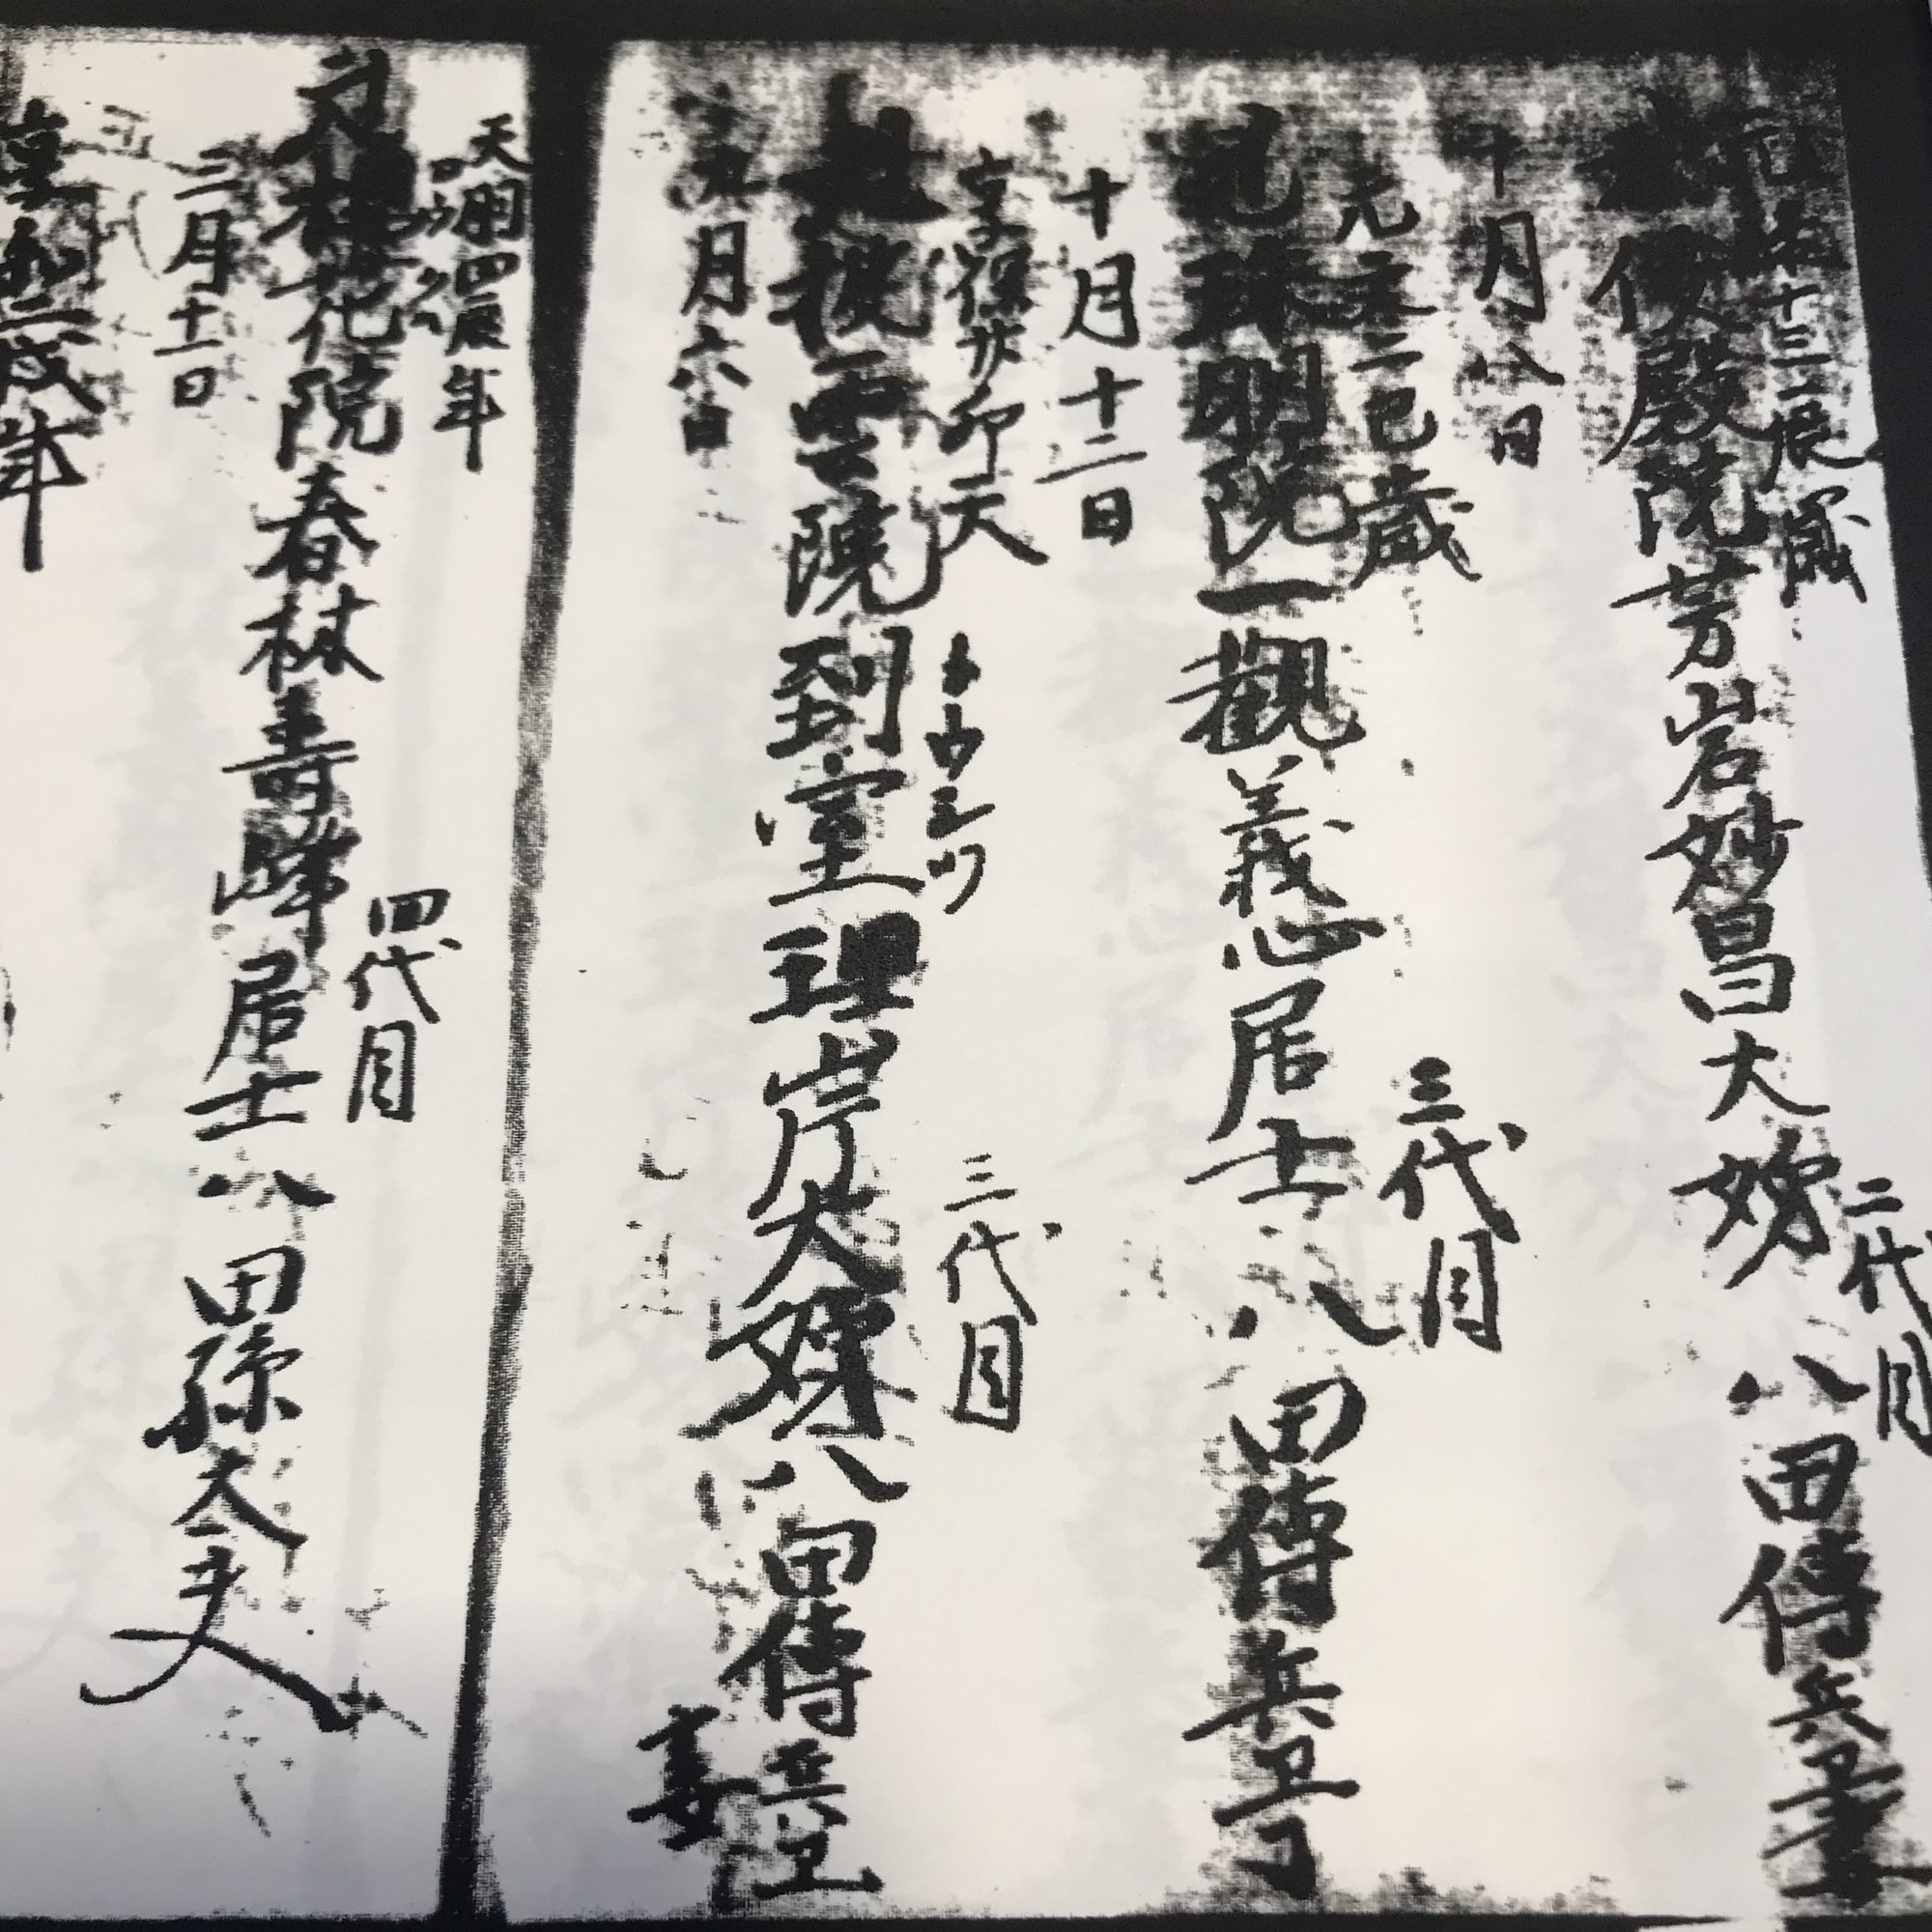 十三辰歳
殿院芳岩妙昌大姉 八田傳兵衛妻
二代目
十月八日
元文二巳歳
珠明院一觀義心居士 八田傳兵卫
三代目
十月十二日
享保廿卯天
雲院到室理岸大姉 八田傳兵卫
トウシツ
三代目
妻
月六日
天明四辰年
花院春林壽峰居士 八田孫太夫
四代目
三月十一日
享和二戌年